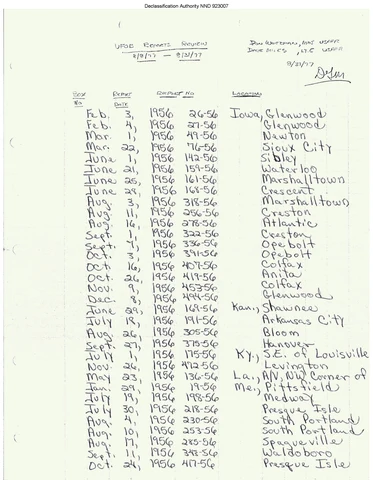 Declassification Authority NND 923007
UFOB REPORTS REVIEW
8/9/77 — 9/21/77
9/21/77
BOX NO. REPORT DATE REPORT NO LOCATION
Feb. 3, 1956 26-56 Iowa, Glenwood
Feb. 4, 1956 27-56 Glenwood
Mar. 1, 1956 49-56 Newton
Mar. 22, 1956 76-56 Sioux City
June 1, 1956 142-56 Sibley
June 21, 1956 159-56 Waterloo
June 25, 1956 161-56 Marshalltown
June 29, 1956 168-56 Crescent
Aug. 3, 1956 318-56 Marshalltown
Aug. 11, 1956 256-56 Creston
Aug. 16, 1956 278-56 Atlantic
Sept. 1, 1956 322-56 Creston
Sept. 7, 1956 336-56 Opebolt
Oct. 3, 1956 391-56 Opebolt
Oct. 16, 1956 407-56 Colfax
Oct. 26, 1956 419-56 Anita
Nov. 9, 1956 453-56 Colfax
Dec. 8, 1956 494-56 Glenwood
June 29, 1956 169-56 Kan., Shawnee
July 18, 1956 191-56 Arkansas City
Aug. 26, 1956 305-56 Bloom
Sept. 27, 1956 375-56 Hanover
July 1, 1956 175-56 Ky., S.E. of Louisville
Nov. 26, 1956 472-56 Levington
May 23, 1956 136-56 La., A/N, NW Corner of
Jan. 29, 1956 19-56 Me., Pittsfield
July 19, 1956 198-56 Medway
July 30, 1956 218-56 Presque Isle
Aug. 4, 1956 230-56 South Portland
Aug. 10, 1956 253-56 South Portland
Aug. 17, 1956 285-56 Spagueville
Sept. 11, 1956 343-56 Waldoboro
Oct. 24, 1956 417-56 Presque Isle